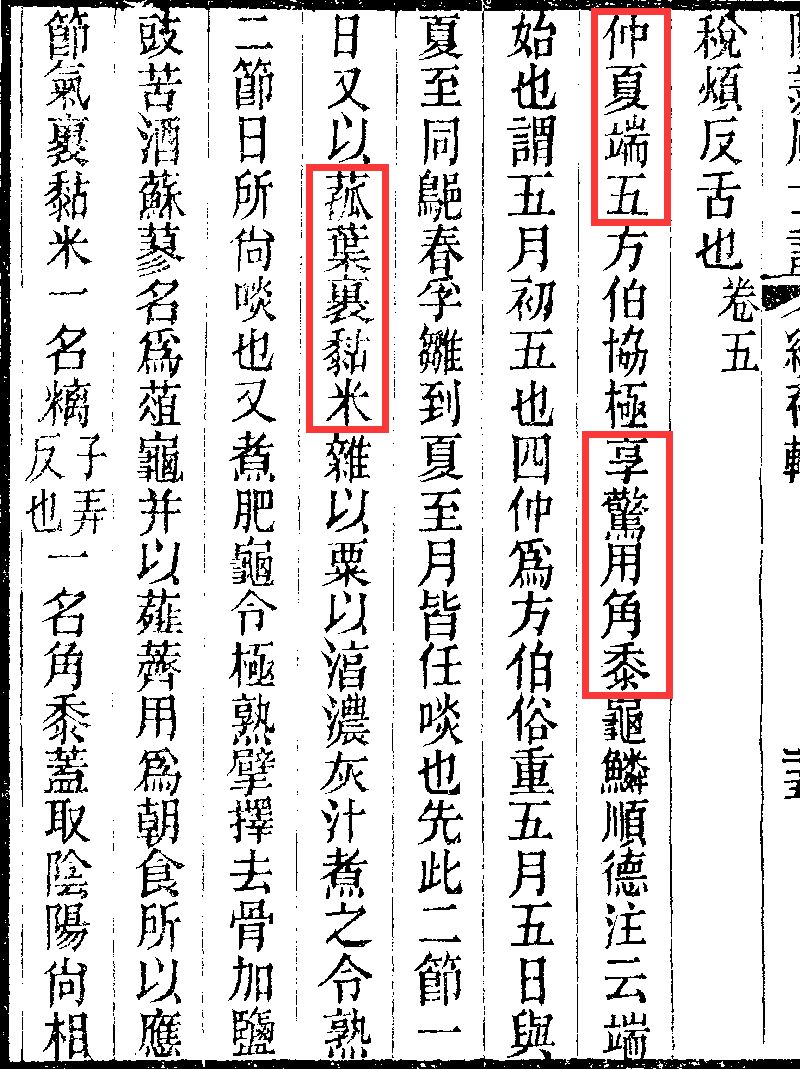 稅煩反舌也卷五
仲夏端五方伯協極享鶩用角黍龜鱗順德注云端
始也謂五月初五也四仲爲方伯俗重五月五日與
夏至同𪃟春孚雛到夏至月皆任啖也先此二節一
日又以菰葉裹黏米雜以粟以湻濃灰汁煮之令熟
二節日所尙啖也又煮肥龜令極熟擘擇去骨加鹽
豉苦酒蘇蓼名爲葅龜并以薤薺用爲朝食所以應
節氣裹黏米一名糉子弄反也一名角黍蓋取陰陽尙相